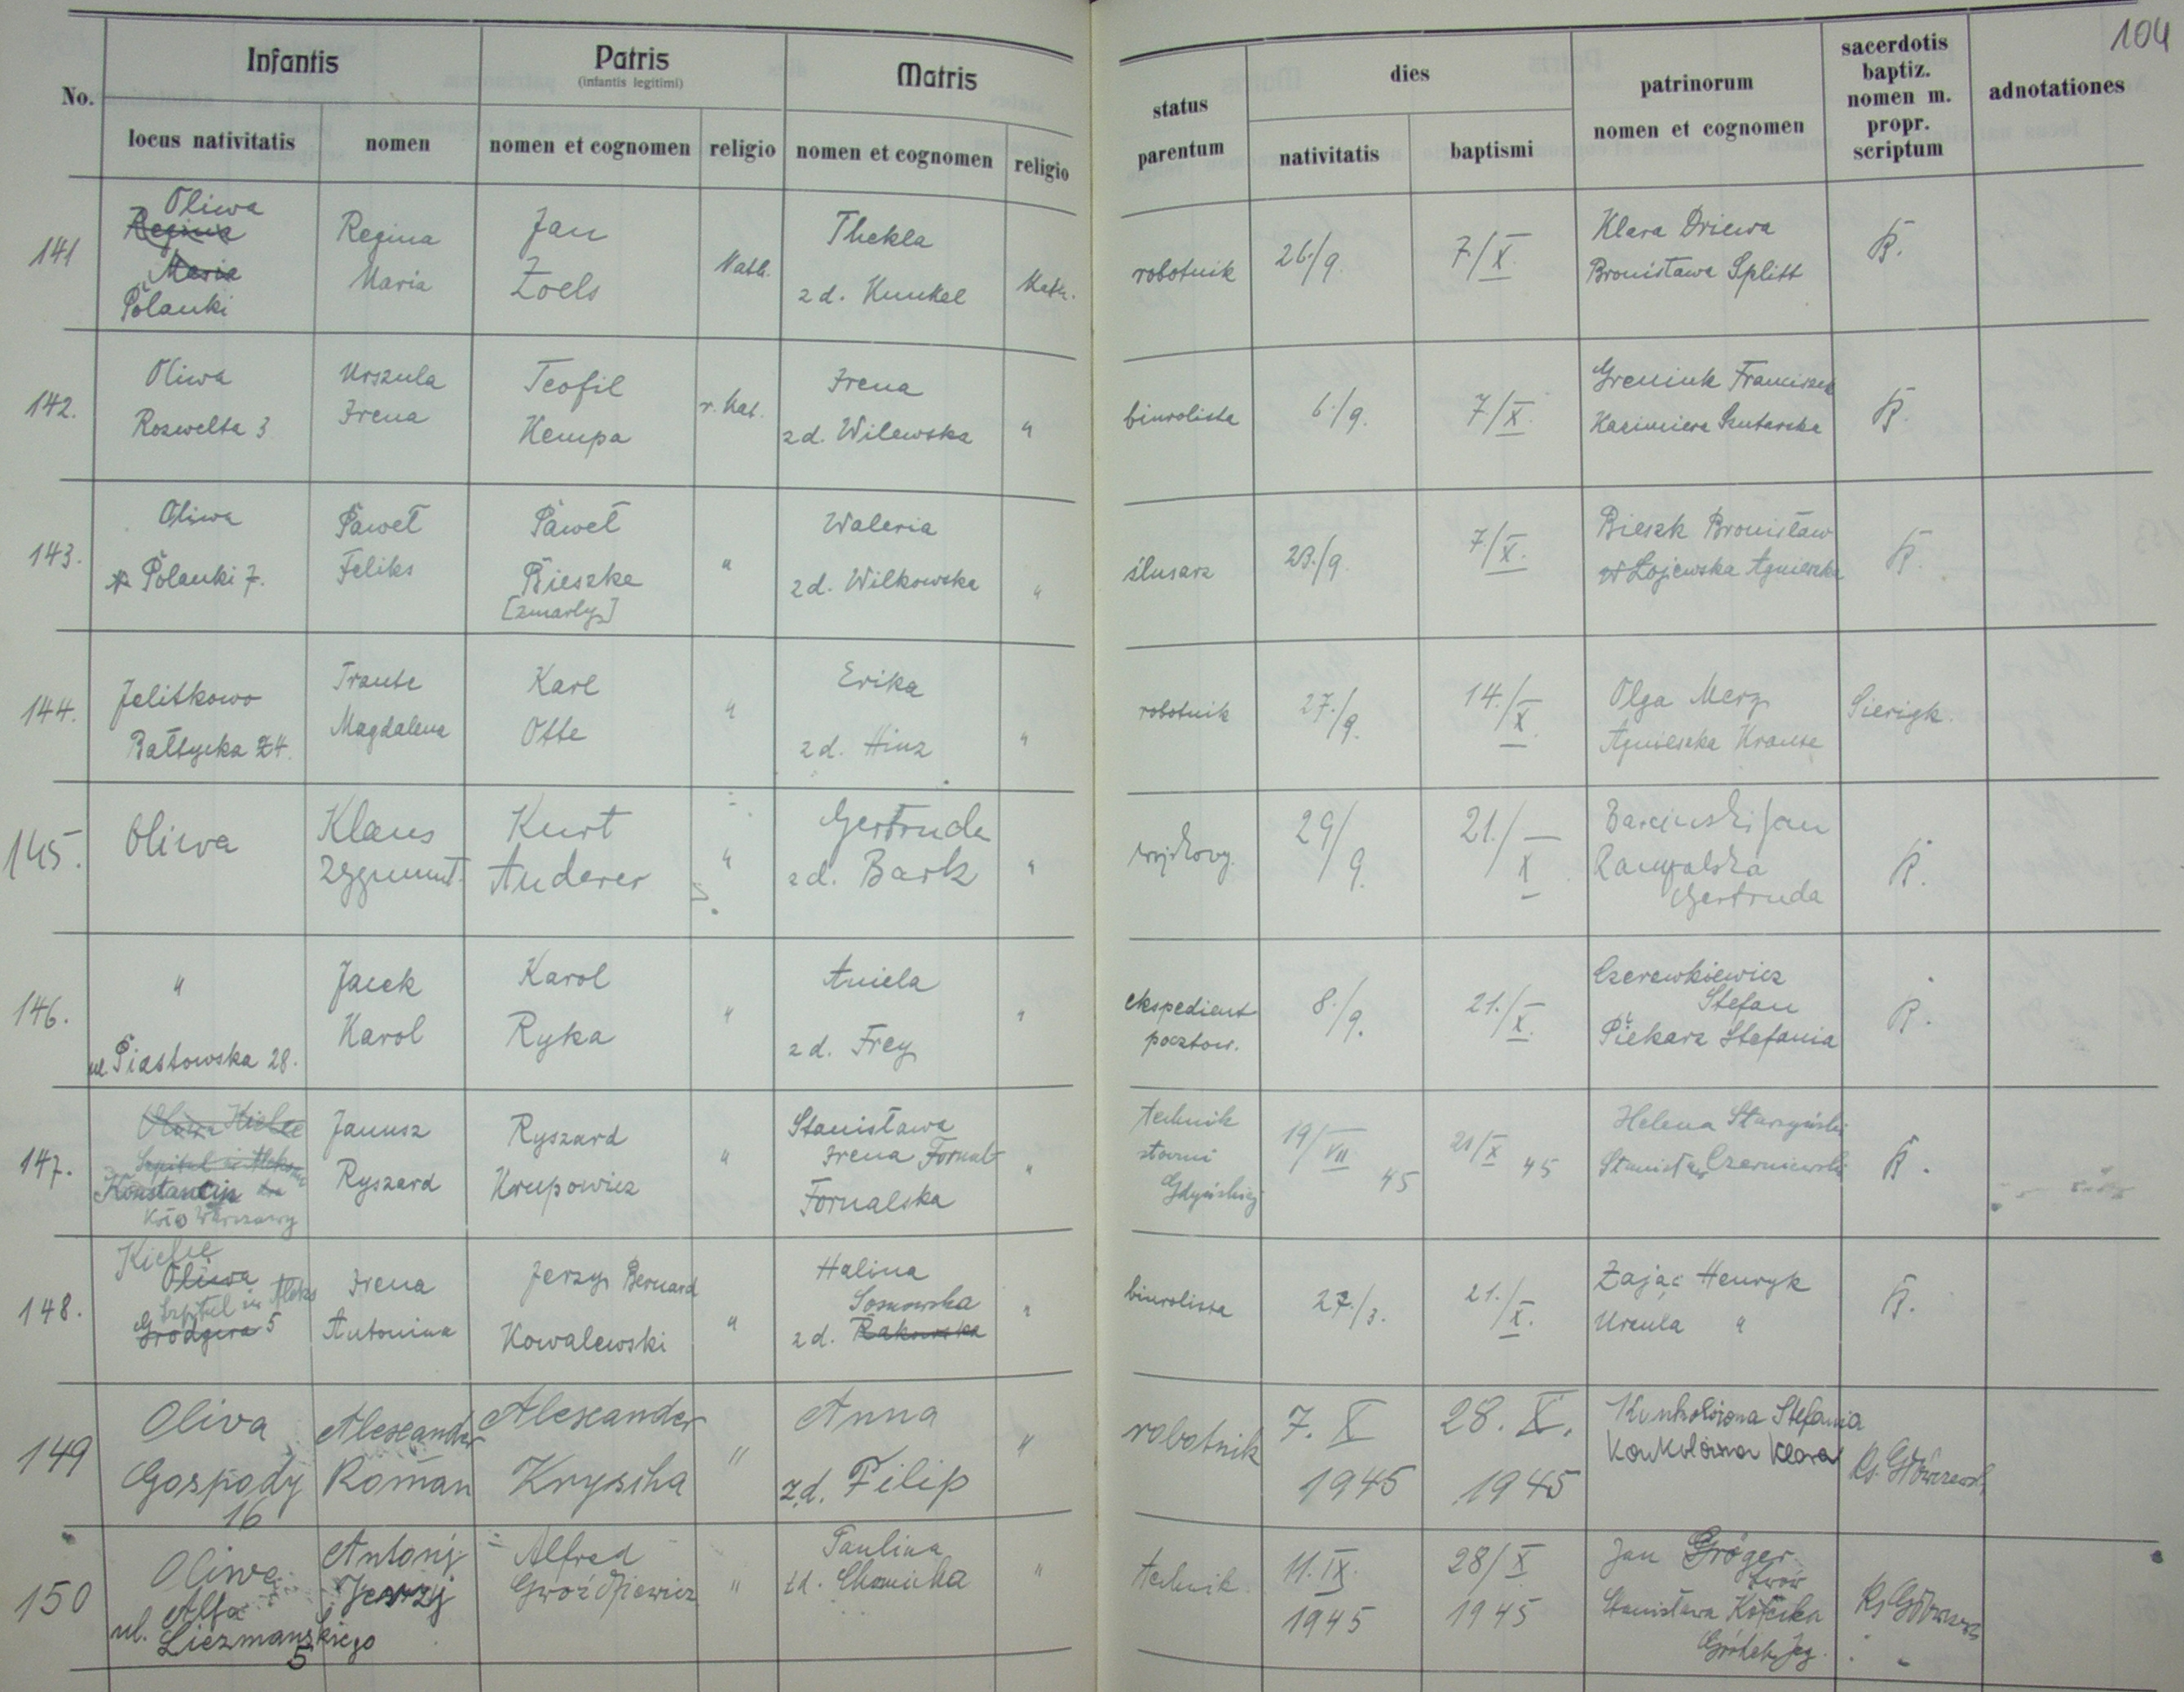 104
No.
Infantis
locus nativitatis
nomen
Patris
(infantis legitimi)
nomen et cognomen
religio
Matris
nomen et cognomen
religio
status
parentum
dies
nativitatis
baptismi
patrinorum
nomen et cognomen
sacerdotis
baptiz.
nomen m.
propr.
scriptum
adnotationes
141
Oliwa
Regina
Maria
Polanki
Regina
Maria
Jan
Zoels
Kath.
Thekla
zd. Kunkel
Kath.
robotnik
26./9.
7/X.
Klara Driewa
Bronisława Splitt
K.
142.
Oliwa
Roswelta 3
Urszula
Irena
Teofil
Kempa
r. kat.
Irena
zd. Wilewska
"
biurolista
6./9.
7/X.
Greniuk Franciszek
Kazimiera
K.
143.
Oliwa
Polanki 7.
Paweł
Feliks
Paweł
Bieszke
[zmarły]
"
Waleria
zd. Wilkowska
"
ślusarz
23./9.
7/X.
Bieszk Bronisław
Łojewska Agnieszka
K.
144.
Jelitkowo
Bałtycka 24.
Traute
Magdalena
Karl
Otte
"
Erika
zd. Hinz
"
robotnik
27./9.
14./X.
Olga Merz
Agnieszka Krause
Sierigk.
145.
Oliwa
Klaus
Zygmunt
Kurt
Anderer
"
Gertruda
zd. Bark
"
29/9.
21./X
Jan
Gertruda
K.
146.
"
ul. Piastowska 28.
Jacek
Karol
Karol
Ryka
"
Aniela
zd. Frey
"
ekspedient
pocztow.
8./9.
21./X.
Czerewkiewicz
Stefan
Piekarz Stefania
K.
147.
Oliwa Kielce
Szpital
Konstancin
koło Warszawy
Janusz
Ryszard
Ryszard
Krupowicz
"
Stanisława
Irena Fornal
Fornalska
"
technik
stoczni
Gdyńskiej
19/VII 45
21/X 45
Helena Starzyński
Stanisław Czerniewski
K.
148.
Kielce
Oliwa
Szpital im Aleks
Grodgera 5
Irena
Antonina
Jerzy Bernard
Kowalewski
"
Halina
Sosnowska
zd. Rakowska
"
biurolista
27./3.
21./X.
Zając Henryk
Urszula "
K.
149
Oliva
Gospody
16
Alexander
Roman
Alexander
Kryscha
"
Anna
zd. Filip
"
robotnik
7. X
1945
28. X.
1945
Stefania
Konkolówna Klara
Ks. Główczewski
150
Oliwa
Alfa
ul. Liczmańskiego
5
Antoni
Jerzy
Alfred
Gwoździewicz
"
Paulina
zd. Chomicka
"
technik
11. IX.
1945
28/X
1945
Jan Gröger
Lwów
Stanisława
Gródek Jag.
Ks